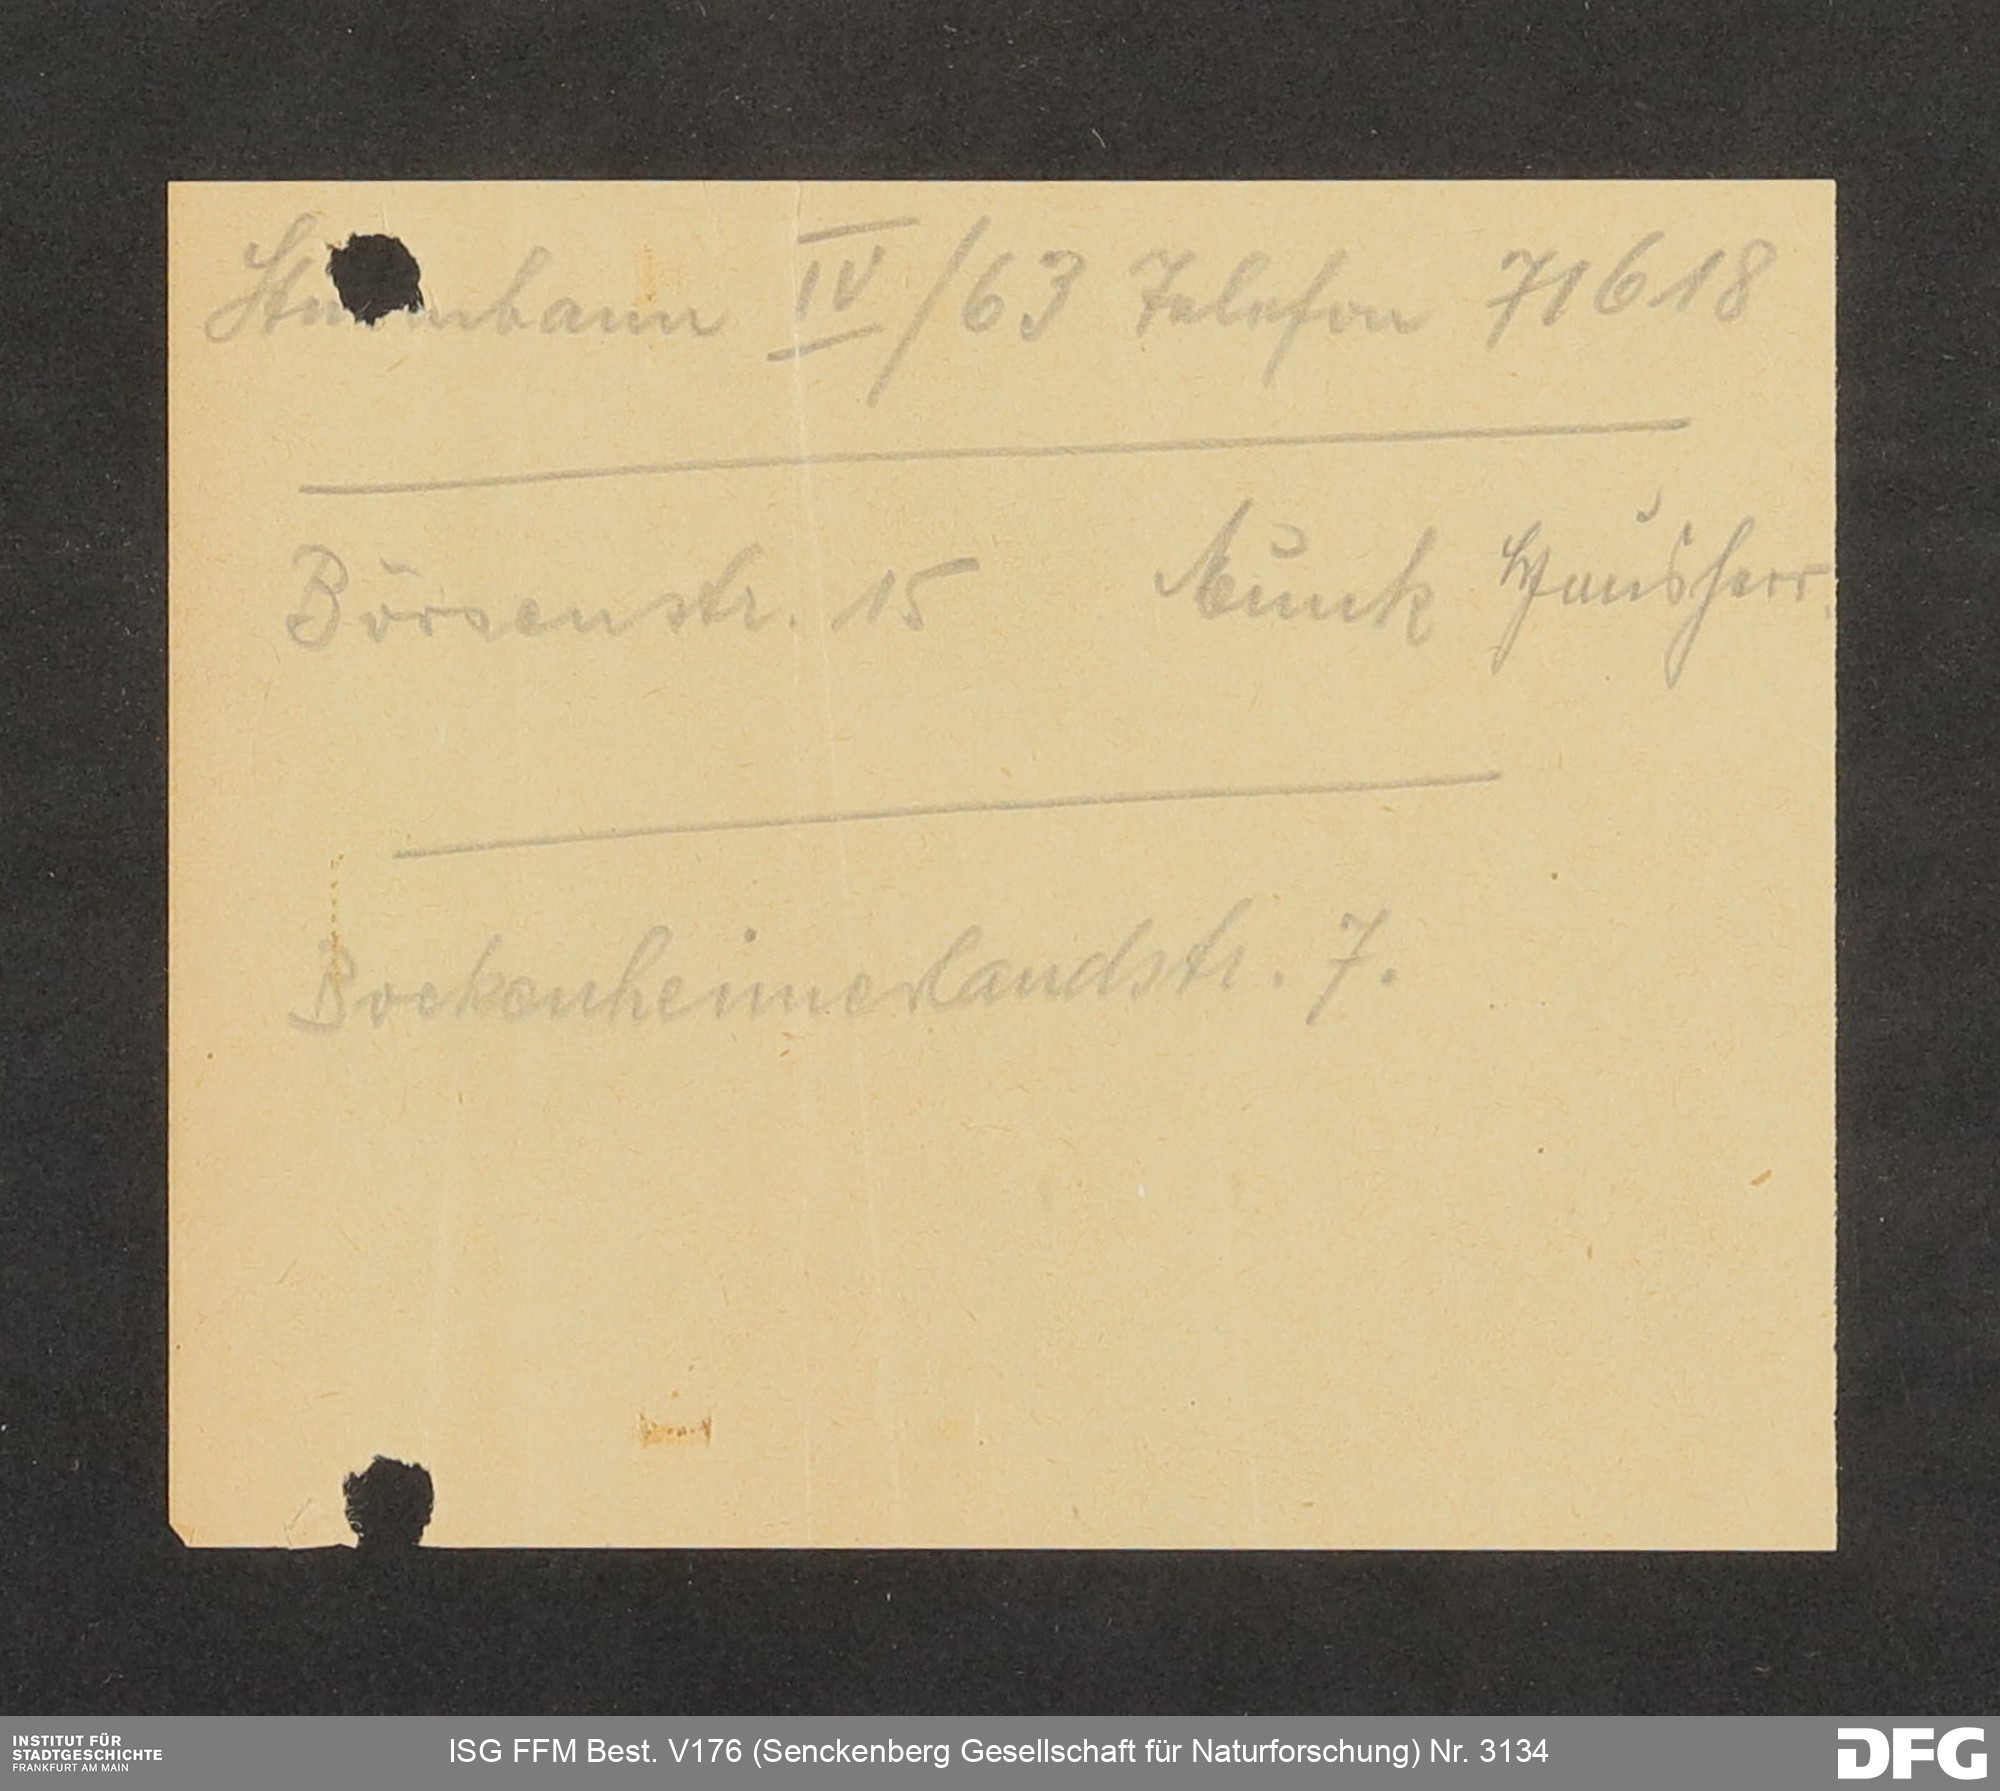 Sturmbann IV/63 Telefon 71618
Börsenstr. 15 Munk Hausherr.
Bockenheimerlandstr. 7.
INSTITUT FÜR
STADTGESCHICHTE
FRANKFURT AM MAIN
ISG FFM Best. V176 (Senckenberg Gesellschaft für Naturforschung) Nr. 3134
DFG